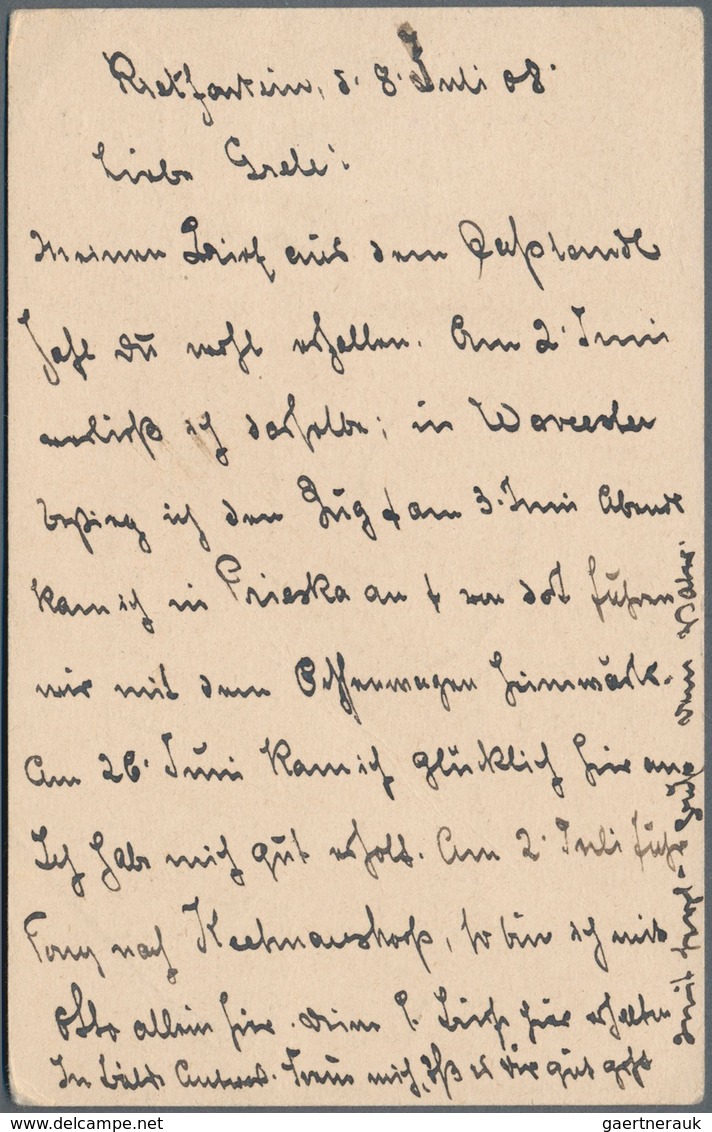 Rietfontein, d. 8. Juli 08.
Liebe Grete!
Meinen Brief aus dem Kapland
hast du wohl erhalten. Am 2. Juni
verließ ich dasselbe; in Worcester
bestieg ich den Zug & am 3. Juni Abends
kam ich in Prieska an & von dort fuhren
wir mit dem Ochsenwagen heimwärts.
Am 26. Juni kam ich glücklich hier an.
Ich habe mich gut erholt. Am 2. Juli fuhr
nach Keetmanshoop, so bin ich mit
Otto allein hier. Deine l. Briefe hier erhalten
In Bälde Antwort. Freue mich, daß es Dir gut geht
mit herzl. Gruß dein
gaertnerauk